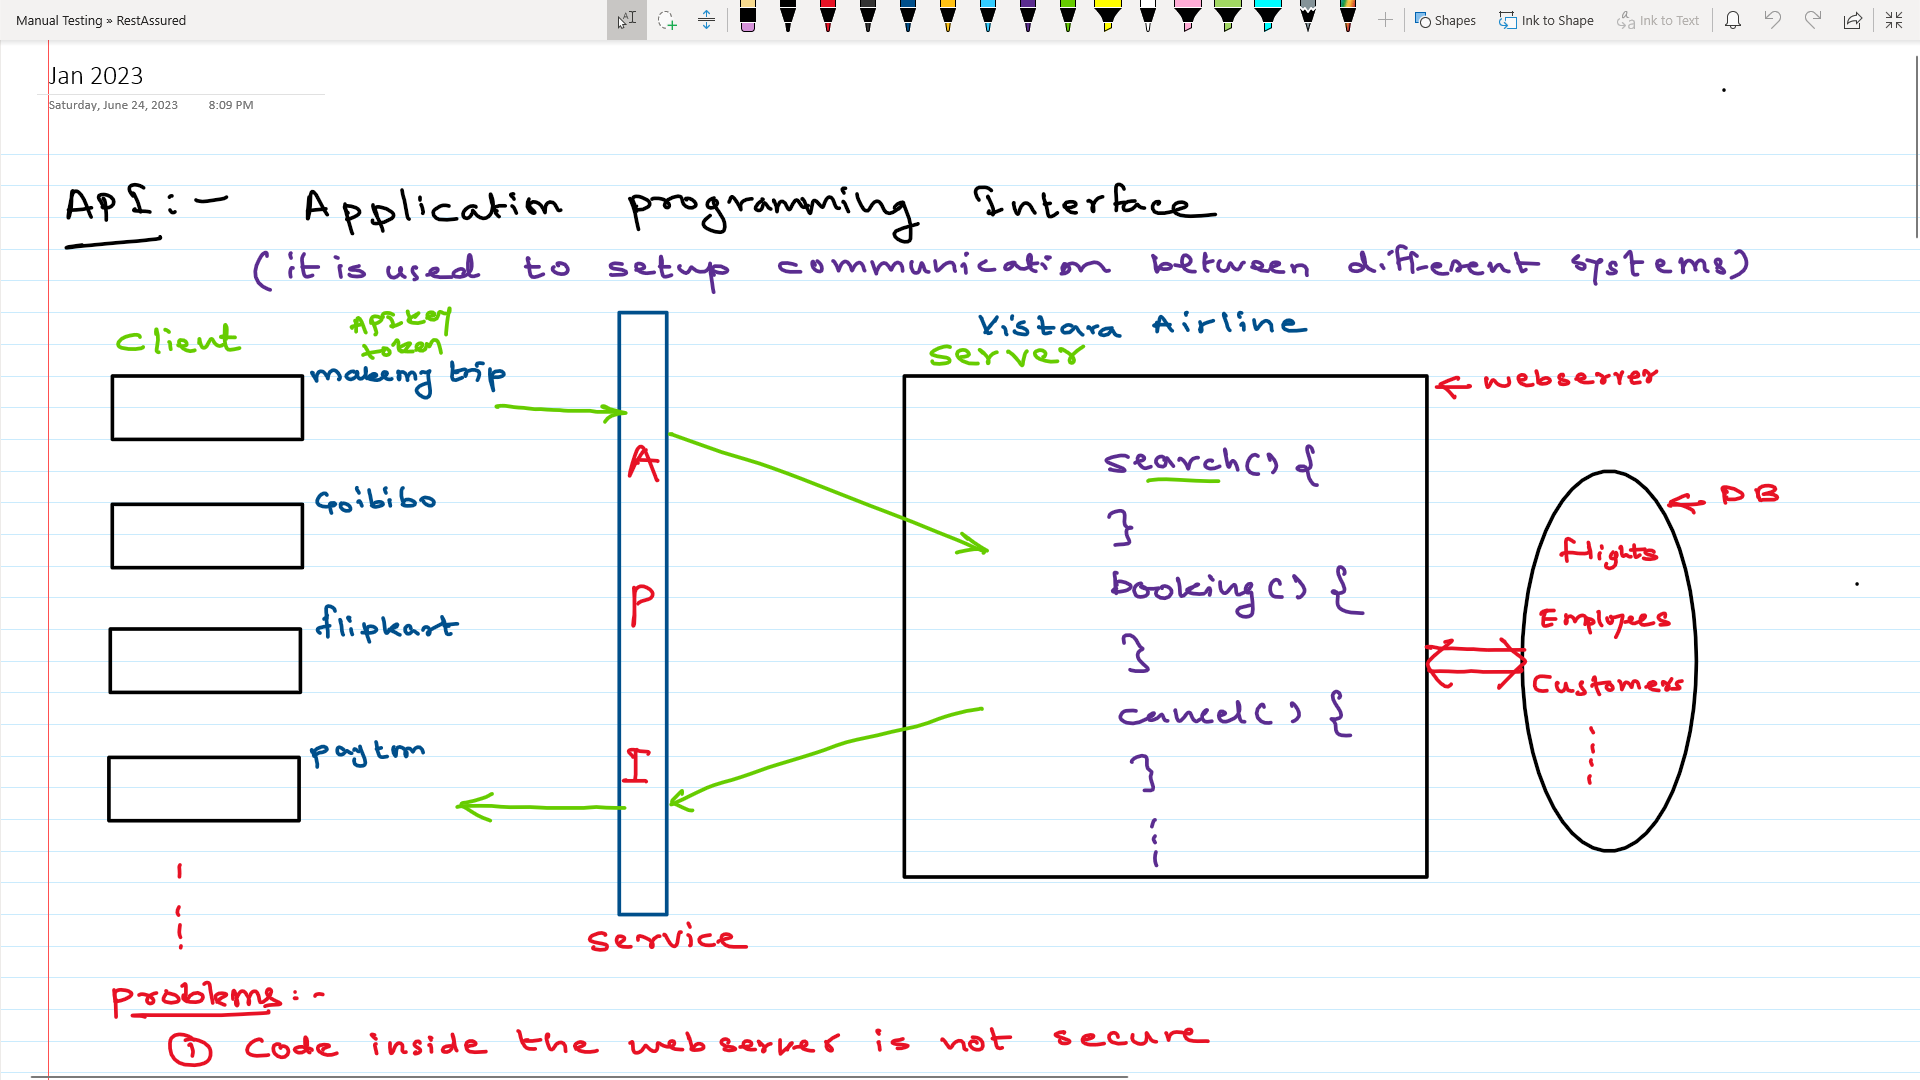 Manual Testing » RestAssured
Shapes
Ink to Shape
Ink to Text
Jan 2023
Saturday, June 24, 2023 8:09 PM
API :- Application programming Interface
(it is used to setup communication between different systems)
Client
API key
token
makemy trip
Goibibo
flipkart
paytm
A
P
I
service
Vistara Airline
server
search() {
}
booking() {
}
cancel() {
}
← webserver
← DB
flights
Employees
Customers
problems :-
① Code inside the webserver is not secure